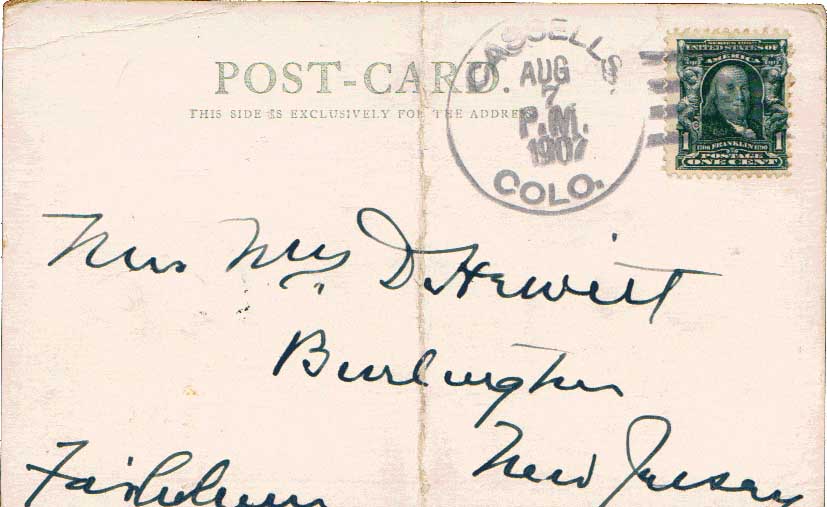 POST-CARD.
THIS SIDE IS EXCLUSIVELY FOR THE ADDRESS
CASSELLS,
AUG
7
P.M.
1907
COLO.
SERIES 1902
UNITED STATES OF
AMERICA
1 1706 FRANKLIN 1790 1
POSTAGE
ONE CENT
Mrs Wm D Hewitt
Burlington
New Jersey